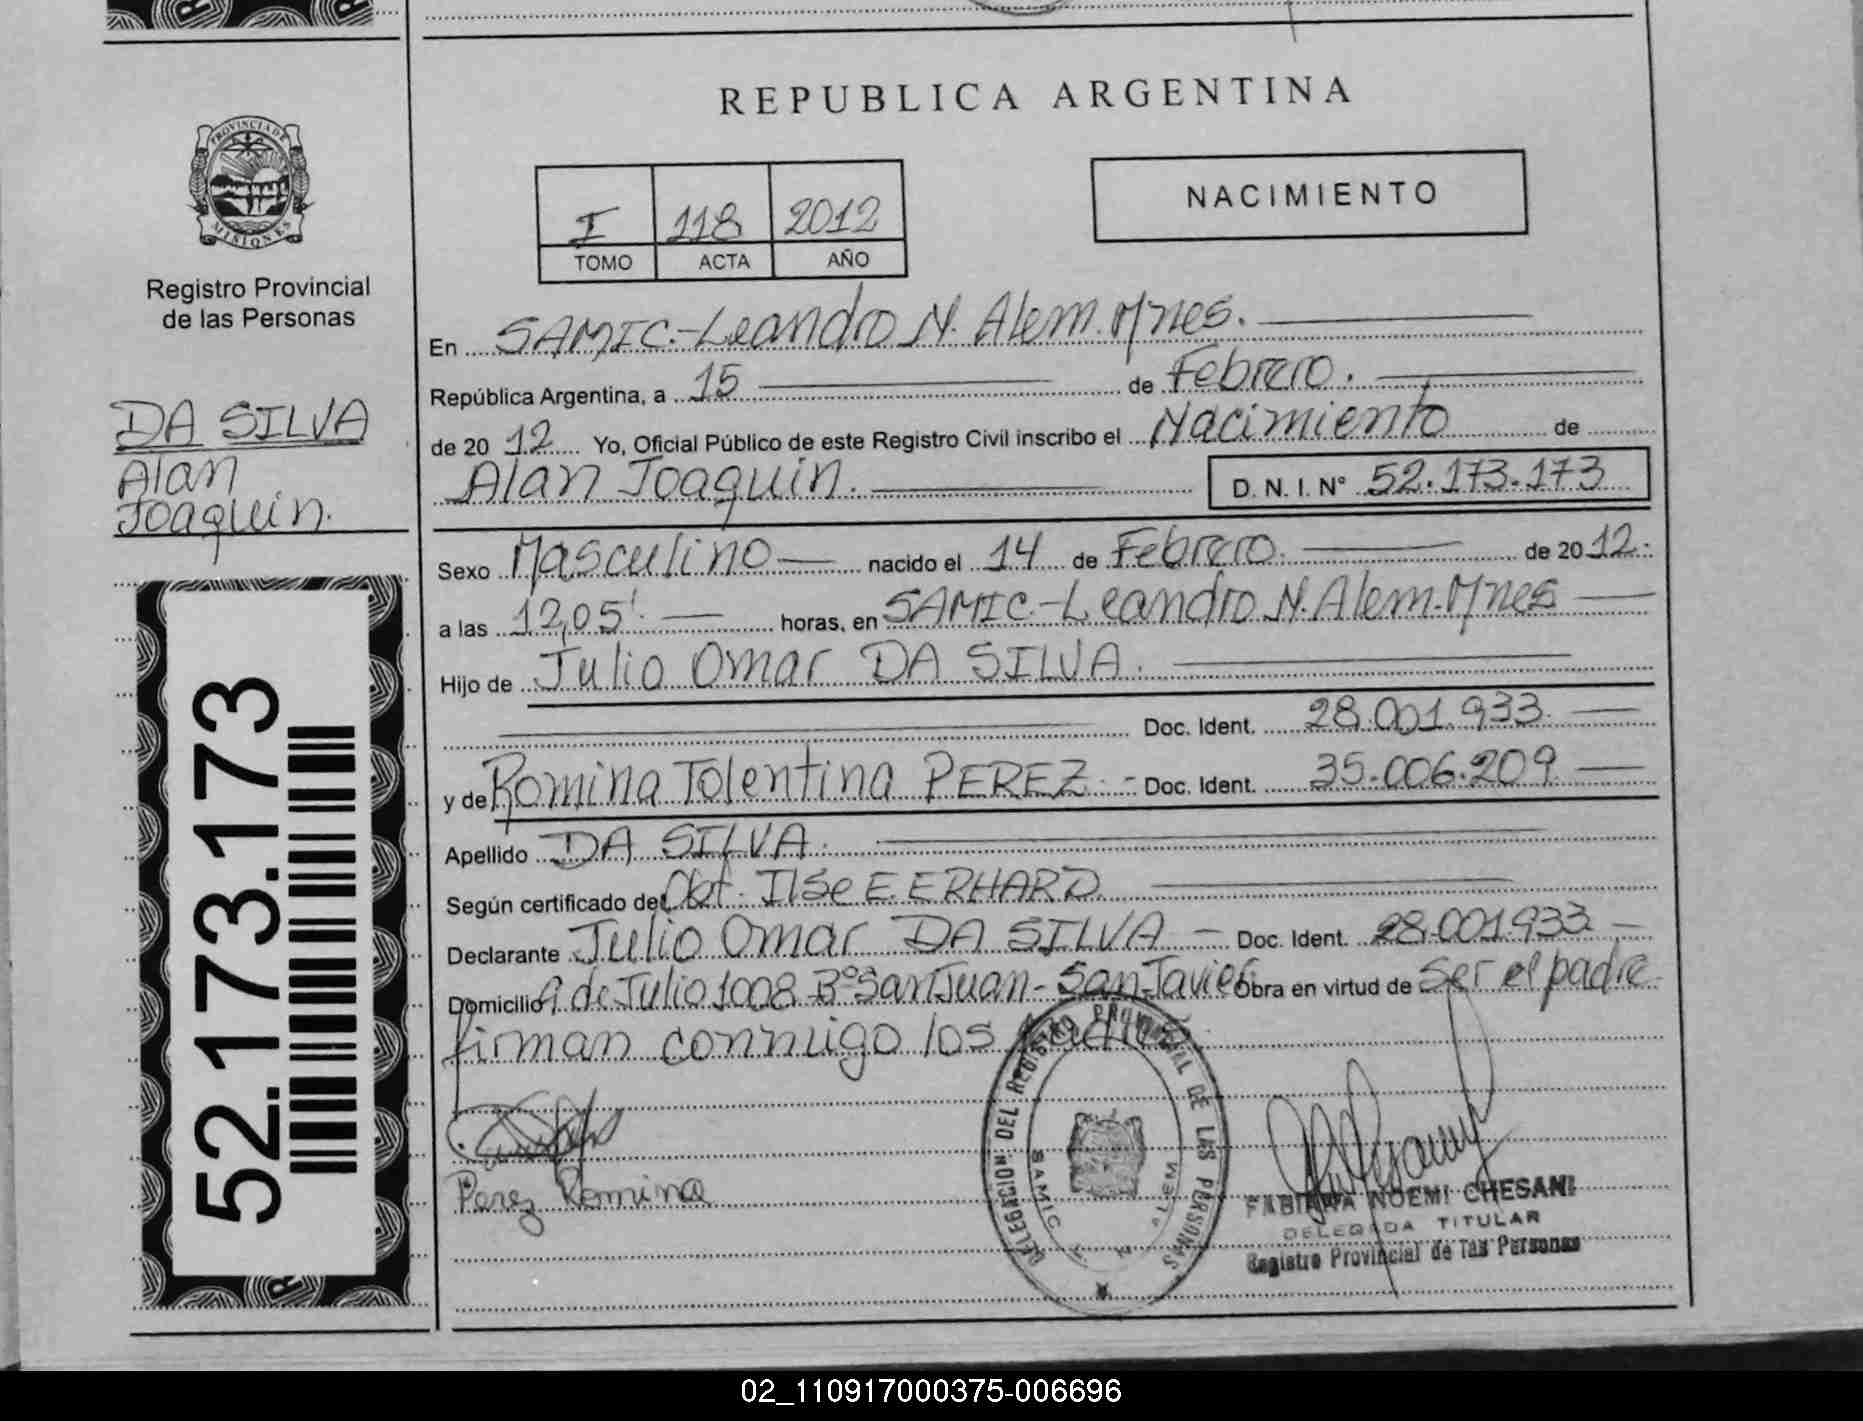 REPUBLICA ARGENTINA
PROVINCIA DE MISIONES
Registro Provincial
de las Personas
DA SILVA
Alan
Joaquin.
52.173.173
I 118 2012
TOMO ACTA AÑO
NACIMIENTO
En SAMIC.-Leandro N. Alem. Mnes.
República Argentina, a 15 de Febrero.
de 20 12 Yo, Oficial Público de este Registro Civil inscribo el Nacimiento de
Alan Joaquin. D. N. I. N° 52.173.173
Sexo Masculino nacido el 14 de Febrero. de 20 12.
a las 12,05' horas, en SAMIC-Leandro N. Alem. Mnes
Hijo de Julio Omar DA SILVA.
Doc. Ident. 28.001.933.
y de Romina Tolentina PEREZ. - Doc. Ident. 35.006.209
Apellido DA SILVA.
Según certificado de Obt. Ilse E. ERHARD.
Declarante Julio Omar DA SILVA - Doc. Ident. 28.001.933
Domicilio 9 de Julio 1008 B° San Juan - San Javier Obra en virtud de Ser el padre
firman conmigo los
Perez Romina
DELEGACION DEL REGISTRO PROVINCIAL DE LAS PERSONAS
SAMIC ALEM
FABIANA NOEMI CHESANI
DELEGADA TITULAR
Registro Provincial de las Personas
02_110917000375-006696